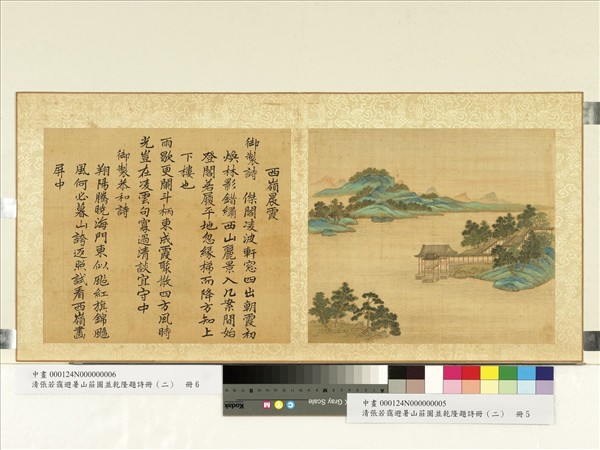 西嶺晨霞
御製詩 傑閣凌波軒窓四出朝霞初
煥林影錯繡西山麗景入几案間始
登閣若履平地忽緣梯而降方知上
下樓也
雨歇更闌斗柄東成霞聚散四方風時
光豈在凌雲句寡過清談宜守中
御製恭和詩
翔陽騰曉海門東似颭紅旗錦颺
風何必暮山誇返照試看西嶺畫
屏中
中畫 000124N000000006
清張若靄避暑山莊圖並乾隆題詩冊（二） 冊 6
Kodak
Gray Scale
C M
中畫 000124N000000005
清張若靄避暑山莊圖並乾隆題詩冊（二） 冊 5